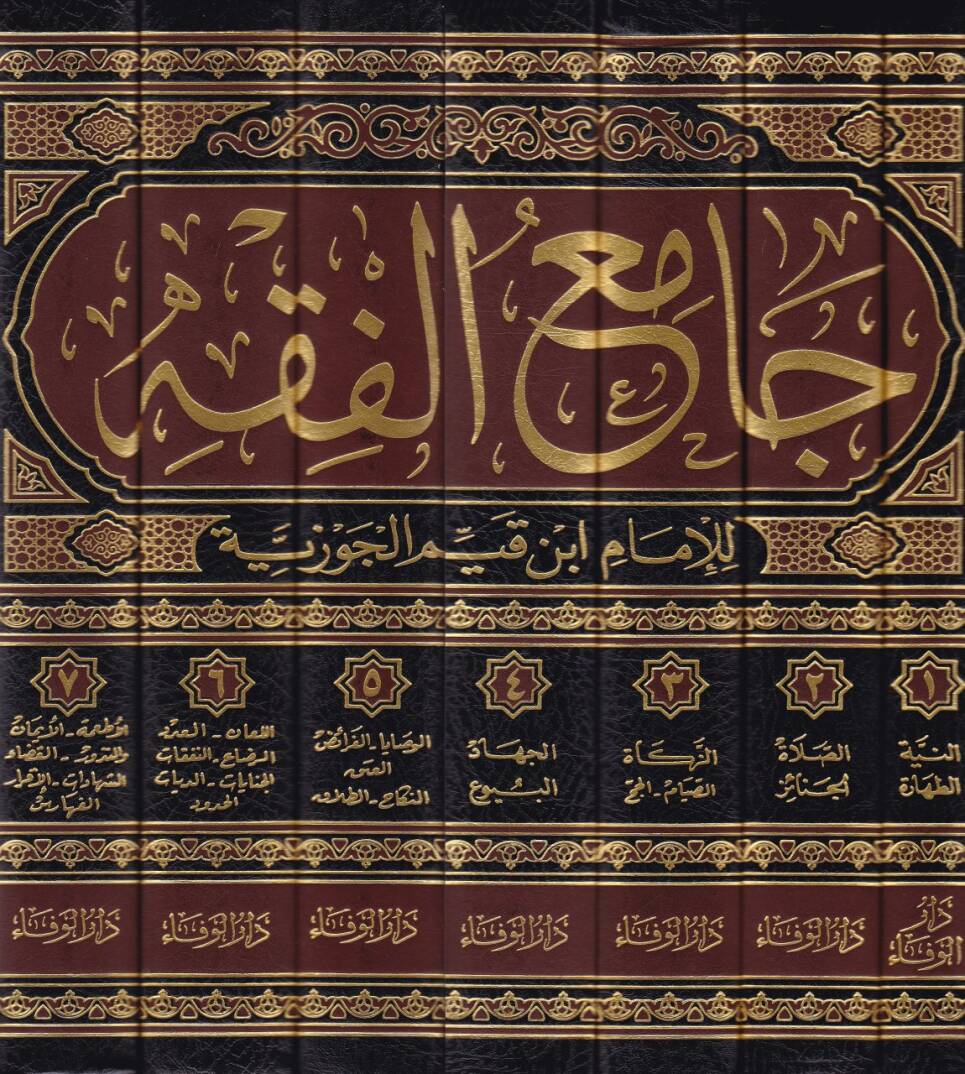 جامع الفقه
للإمام ابن قيم الجوزية
١
النية
الطهارة
دار
الوفاء
٢
الصلاة
الجنائز
دار الوفاء
٣
الزكاة
الصيام - الحج
دار الوفاء
٤
الجهاد
البيوع
دار الوفاء
٥
الوصايا - الفرائض
العتق
النكاح - الطلاق
دار الوفاء
٦
اللعان - العدد
الرضاع - النفقات
الجنايات - الديات
الحدود
دار الوفاء
٧
الأطعمة - الأيمان
والنذور - القضاء
الشهادات - الإقرار
الفهارس
دار الوفاء